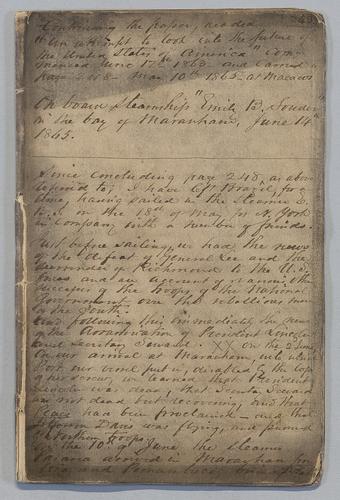 249
Continuing the paper, headed
"An attempt to look into the future of
the United States of America" com-
menced June 17th 1863 and carried
page 248 - May 10th 1865 - at Maceio
On board Steamship "Emily B. Souder"
in the bay of Maranham, June 14th
1865.
Since concluding page 248, as above
referred to, I have left Brazil, for a
time, having sailed in the Steamer E.
B. S. on the 18th of May for N. York
in company with a number of friends.
Just before sailing, we had the news
of the defeat of General Lee and the
surrender of Richmond to the U. S.
forces and an account of the
success of the troops of the National
Government over the rebellious
in the South.
And following this immediately the news
of the Assassination of President Lincoln
and Secretary Seward. XX On the 2 June
on our arrival at Maranham, into which
Port our vessel put in, disabled by the loss
of her screw, we learned that President
Lincoln was dead, that Secretary Seward
was not dead but recovering, and that
Peace had been proclaimed - and that
Davis was flying, and pursued
by Northern troops.
On the 10th of June the Steamer
arrived in Maranham from